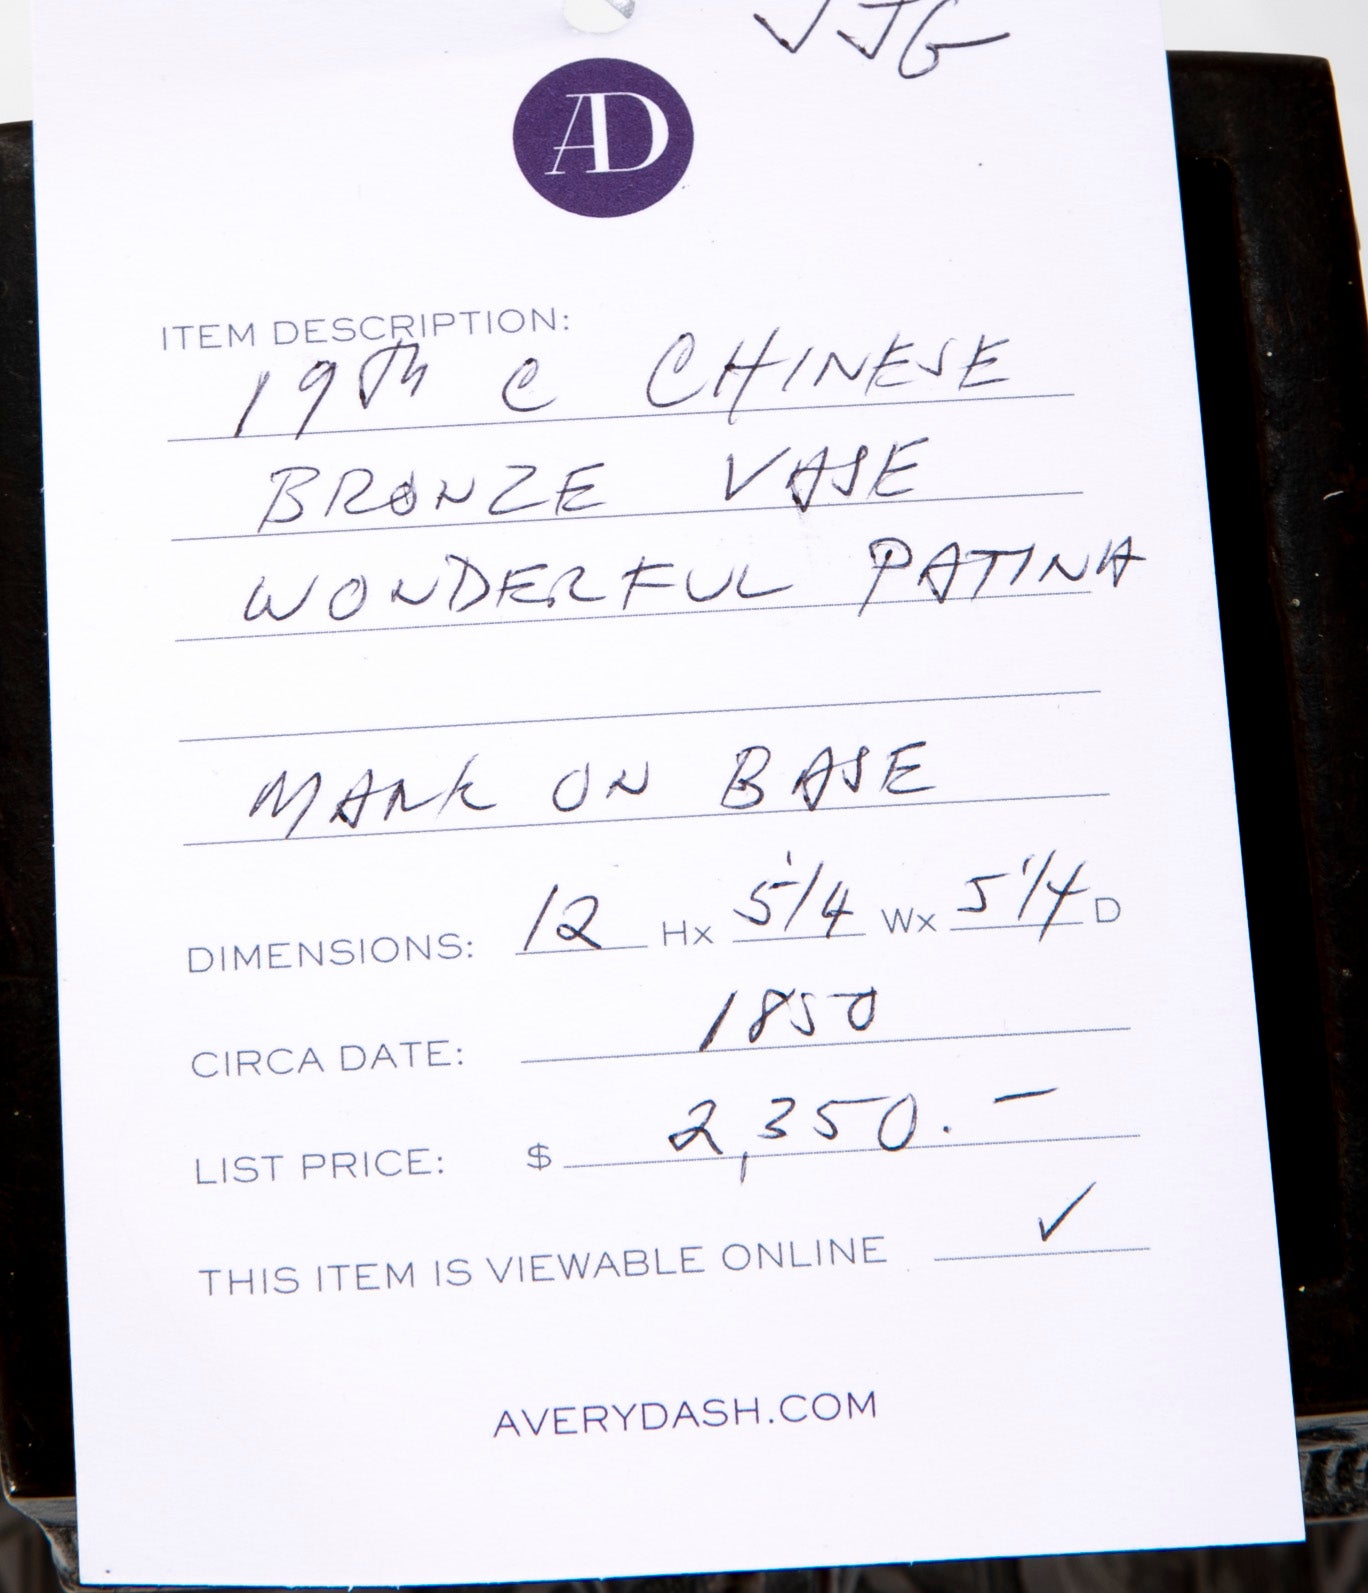 JJG
AD
ITEM DESCRIPTION:
19th C CHINESE
BRONZE VASE
WONDERFUL PATINA
MARK ON BASE
DIMENSIONS: 12 Hx 5 1/4 Wx 5 1/4 D
CIRCA DATE: 1850
LIST PRICE: $ 2,350.—
THIS ITEM IS VIEWABLE ONLINE ✓
AVERYDASH.COM